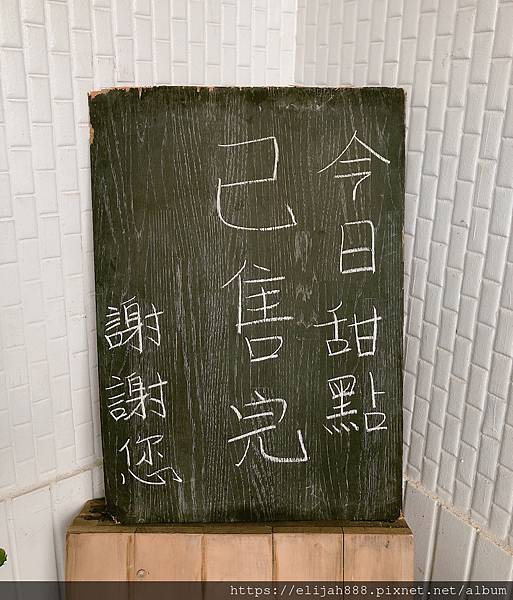 今日甜點
已售完
謝謝您
https://elijah888.pixnet.net/album